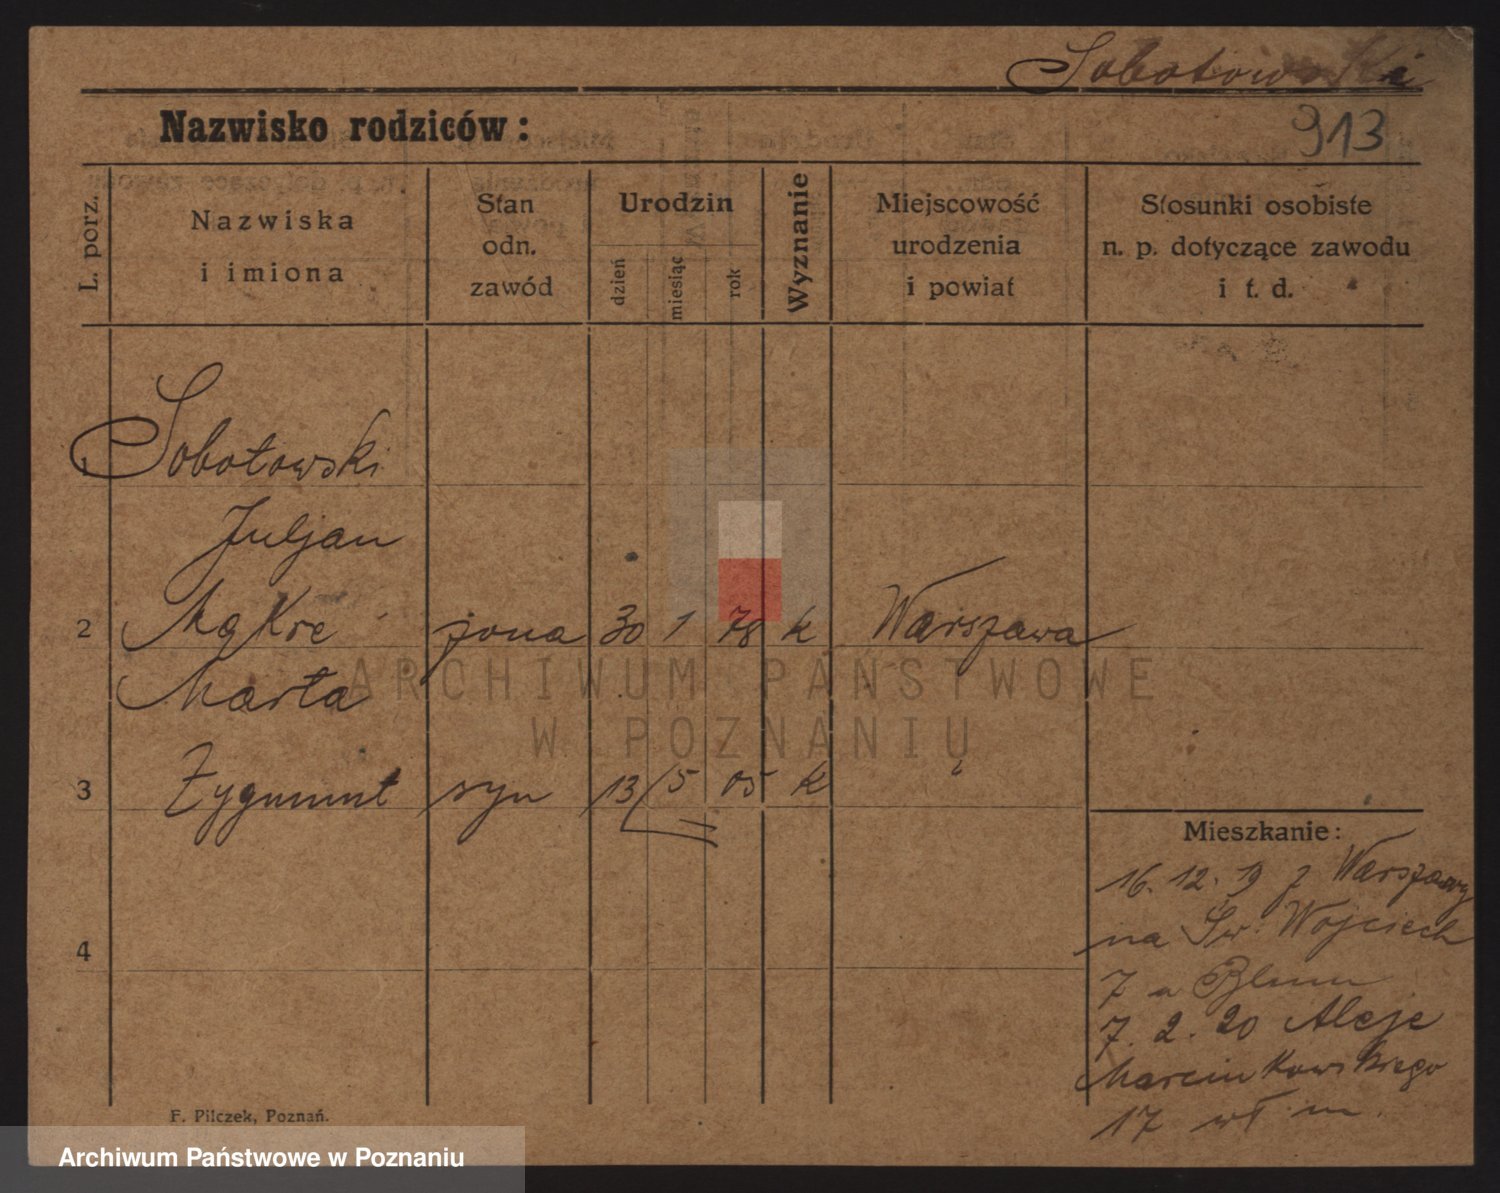 Sobotowski
Nazwisko rodziców:
913
L. porz.
Nazwiska
i imiona
Stan
odn.
zawód
Urodzin
dzień
miesiąc
rok
Wyznanie
Miejscowość
urodzenia
i powiat
Stosunki osobiste
n. p. dotyczące zawodu
i t. d.
1
Sobotowski
Juljan
2 żona 30 1 78 k Warszawa
Marta
3 Zygmunt syn 13/5 05 k "
4
Mieszkanie:
16. 12. 19 z Warszawy
na Św. Wojciech
7 a Blum
7. 2. 20 Aleje
Marcinkowskiego
17 wł. m.
F. Pilczek, Poznań.
ARCHIWUM PAŃSTWOWE
W POZNANIU
Archiwum Państwowe w Poznaniu